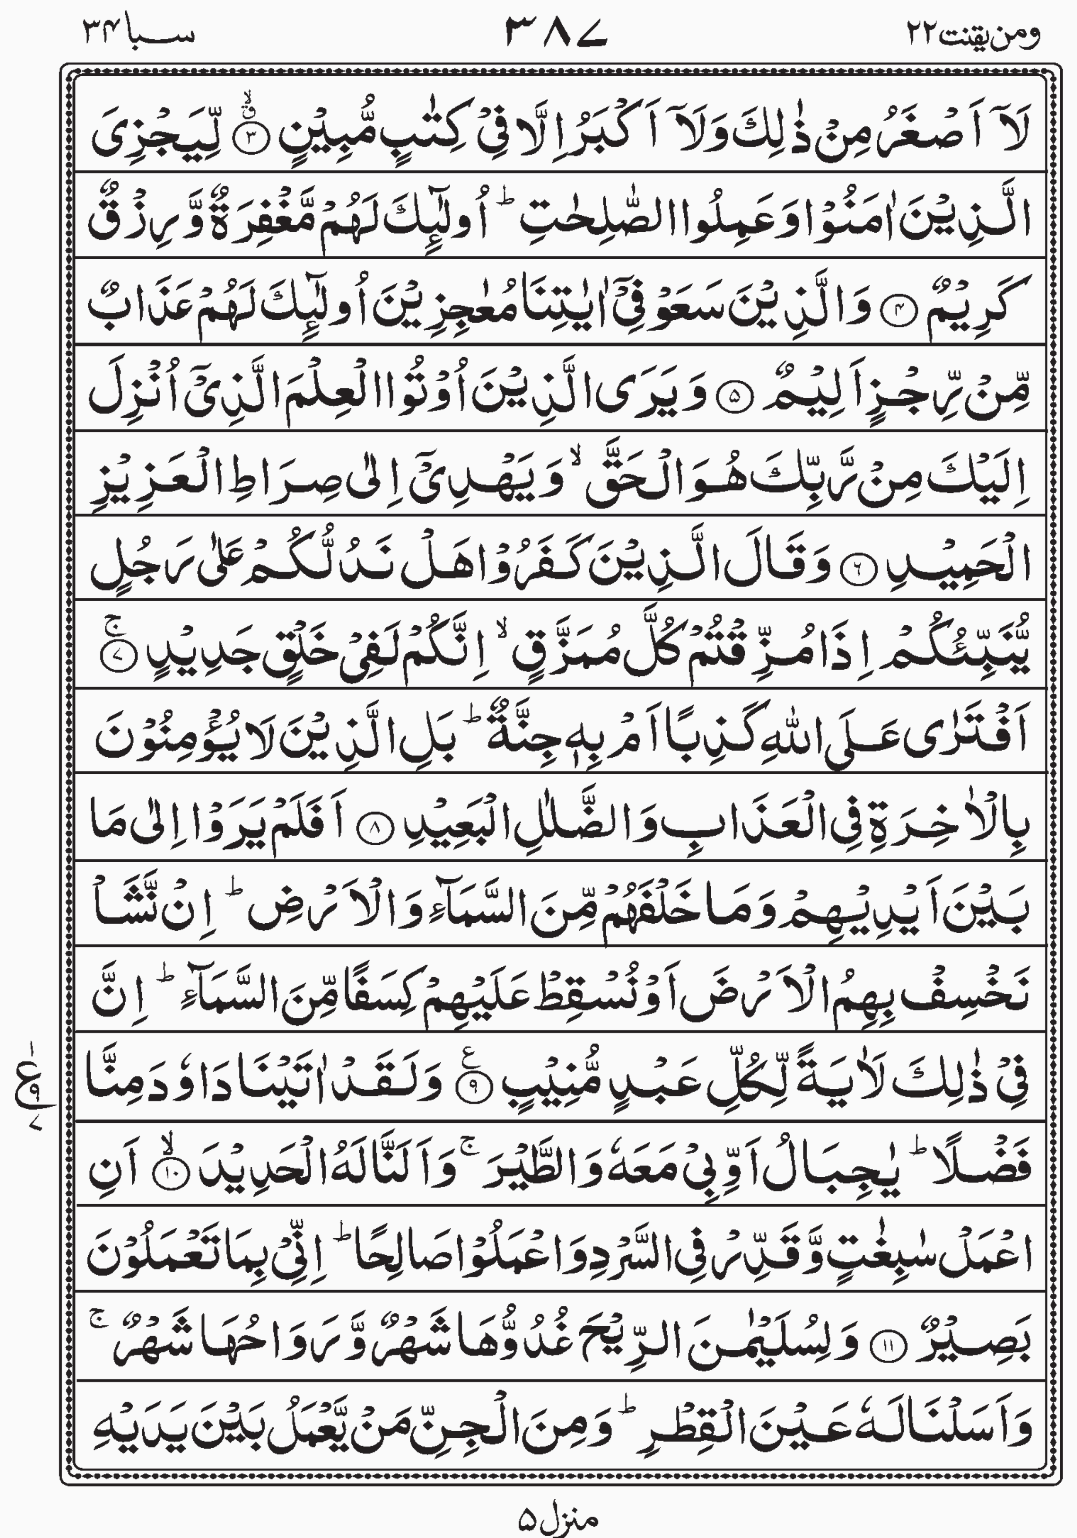 ومن یقنت۲۲ ۳۸۷ سبا۳۴
لَاۤ اَصْغَرُ مِنْ ذٰلِكَ وَلَاۤ اَكْبَرُ اِلَّا فِیْ كِتٰبٍ مُّبِیْنٍ ۙۗ﴿۳﴾ لِّیَجْزِیَ
الَّذِیْنَ اٰمَنُوْا وَعَمِلُوا الصّٰلِحٰتِ ؕ اُولٰٓئِكَ لَهُمْ مَّغْفِرَةٌ وَّرِزْقٌ
كَرِیْمٌ ﴿۴﴾ وَالَّذِیْنَ سَعَوْ فِیْۤ اٰیٰتِنَا مُعٰجِزِیْنَ اُولٰٓئِكَ لَهُمْ عَذَابٌ
مِّنْ رِّجْزٍ اَلِیْمٌ ﴿۵﴾ وَیَرَی الَّذِیْنَ اُوْتُوا الْعِلْمَ الَّذِیْۤ اُنْزِلَ
اِلَیْكَ مِنْ رَّبِّكَ هُوَ الْحَقَّ ۙ وَیَهْدِیْۤ اِلٰی صِرَاطِ الْعَزِیْزِ
الْحَمِیْدِ ﴿۶﴾ وَقَالَ الَّذِیْنَ كَفَرُوْا هَلْ نَدُلُّكُمْ عَلٰی رَجُلٍ
یُّنَبِّئُكُمْ اِذَا مُزِّقْتُمْ كُلَّ مُمَزَّقٍ ۙ اِنَّكُمْ لَفِیْ خَلْقٍ جَدِیْدٍ ۚ﴿۷﴾
اَفْتَرٰی عَلَی اللهِ كَذِبًا اَمْ بِهٖ جِنَّةٌ ؕ بَلِ الَّذِیْنَ لَا یُؤْمِنُوْنَ
بِالْاٰخِرَةِ فِی الْعَذَابِ وَالضَّلٰلِ الْبَعِیْدِ ﴿۸﴾ اَفَلَمْ یَرَوْا اِلٰی مَا
بَیْنَ اَیْدِیْهِمْ وَمَا خَلْفَهُمْ مِّنَ السَّمَآءِ وَالْاَرْضِ ؕ اِنْ نَّشَاْ
نَخْسِفْ بِهِمُ الْاَرْضَ اَوْ نُسْقِطْ عَلَیْهِمْ كِسَفًا مِّنَ السَّمَآءِ ؕ اِنَّ
فِیْ ذٰلِكَ لَاٰیَةً لِّكُلِّ عَبْدٍ مُّنِیْبٍ ﴿۹﴾ع وَلَقَدْ اٰتَیْنَا دَاوٗدَ مِنَّا
۱ ع ۹ ۷
فَضْلًا ؕ یٰجِبَالُ اَوِّبِیْ مَعَهٗ وَالطَّیْرَ ۚ وَاَلَنَّا لَهُ الْحَدِیْدَ ۙ﴿۱۰﴾ اَنِ
اعْمَلْ سٰبِغٰتٍ وَّقَدِّرْ فِی السَّرْدِ وَاعْمَلُوْا صَالِحًا ؕ اِنِّیْ بِمَا تَعْمَلُوْنَ
بَصِیْرٌ ﴿۱۱﴾ وَلِسُلَیْمٰنَ الرِّیْحَ غُدُوُّهَا شَهْرٌ وَّرَوَاحُهَا شَهْرٌ ۚ
وَاَسَلْنَا لَهٗ عَیْنَ الْقِطْرِ ؕ وَمِنَ الْجِنِّ مَنْ یَّعْمَلُ بَیْنَ یَدَیْهِ
منزل۵